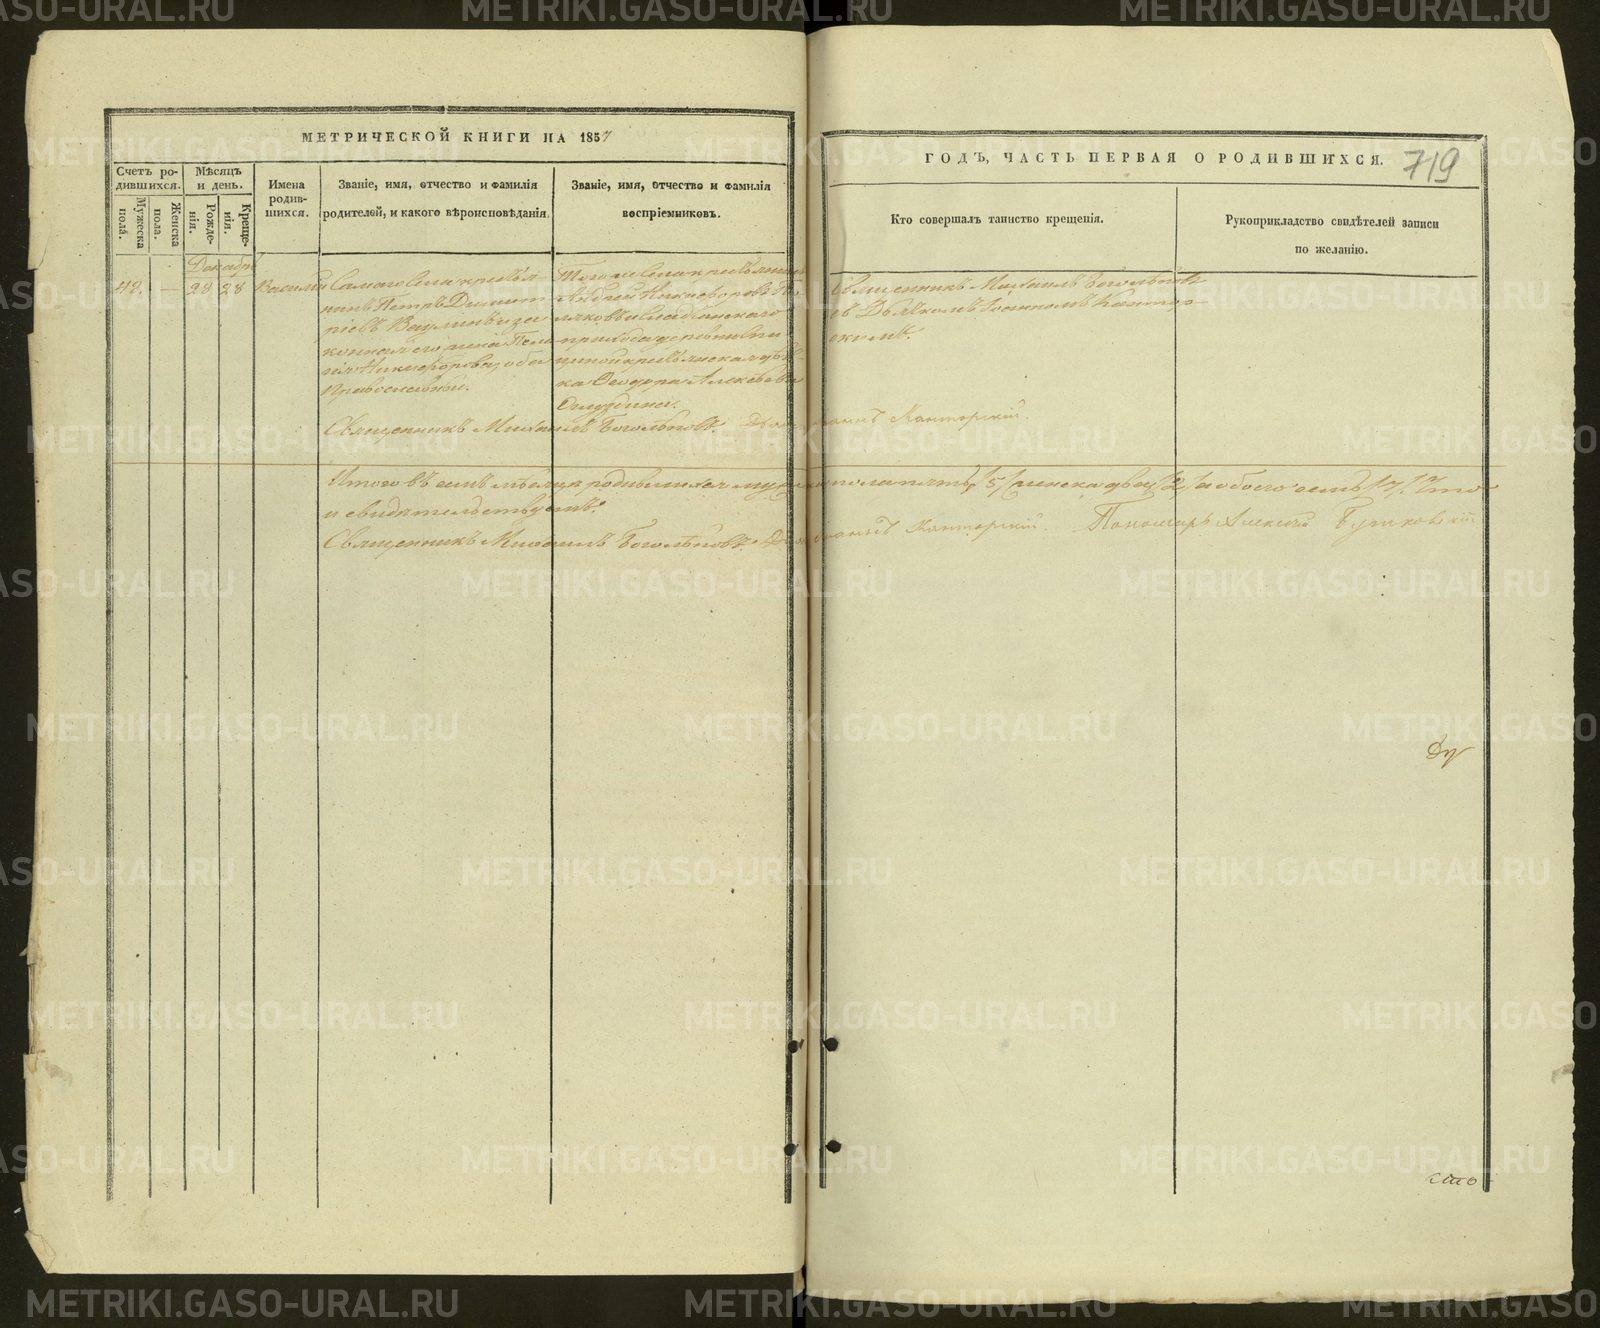 МЕТРИЧЕСКОЙ КНИГИ НА 1857
ГОДЪ, ЧАСТЬ ПЕРВАЯ О РОДИВШИХСЯ.
719
Счетъ ро-
дившихся.
Мужеска
пола.
Женска
пола.
Мѣсяцъ
и день.
Рожде-
нія.
Креще-
нія.
Имена
родив-
шихся.
Званіе, имя, отчество и фамилія
родителей, и какого вѣроисповѣданія.
Званіе, имя, отчество и фамилія
воспріемниковъ.
Кто совершалъ таинство крещенія.
Рукоприкладство свидѣтелей записи
по желанію.
Декабрь
28 28
Василій
Самаго села крестья
нинъ Петръ Димит
ріевъ Ваулинъ и за
конная его жена
Никифорова, оба
Православныи.
Тогоже села крестьянинъ
Андрей Никифоровъ
прихода деревни
ка Ѳеодора Алексѣева
Священникъ Михаилъ Боголѣповъ
съ Дьякономъ Іоанномъ Кантор
скимъ.
Священникъ Михаилъ Боголѣповъ. Канторскій.
Итого въ семъ мѣсяцѣ родившихся мужеска пола пять /5/ женска два /2/ а обоего семь /7/. Что
и свидѣтельствуемъ:
Священникъ Михаилъ Боголѣповъ. Канторскій. Пономарь Алексій
сто
METRIKI.GASO-URAL.RU